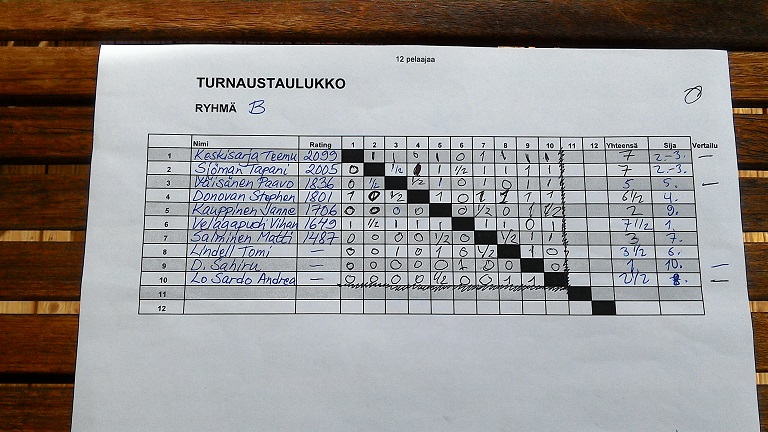 12 pelaajaa
TURNAUSTAULUKKO
RYHMÄ B
Nimi Rating 1 2 3 4 5 6 7 8 9 10 11 12 Yhteensä Sija Vertailu
1 Keskisarja Teemu 2099 1 1 0 1 0 1 1 1 1 7 2.-3. —
2 Sjöman Tapani 2005 0 1/2 1 1 1/2 1 1 1 1 7 2.-3.
3 Väisänen Paavo 1836 0 1/2 1/2 1 0 1 0 1 1 5 5. —
4 Donovan Stephen 1801 1 0 1/2 1 0 1 1 1 1 6 1/2 4.
5 Kauppinen Janne 1706 0 0 0 0 0 1/2 0 1 1/2 2 9.
6 Velagapudi Vihan 1649 1 1/2 1 1 1 1 1 0 1 7 1/2 1.
7 Salminen Matti 1487 0 0 0 0 1/2 0 1/2 1 1 3 7.
8 Lindell Tomi — 0 0 1 0 1 0 1/2 1 0 3 1/2 6.
9 D. Sahiru — 0 0 0 0 0 1 0 0 0 1 10. —
10 Lo Sardo Andrea — 0 0 0 0 1/2 0 0 1 1 2 1/2 8. —
11
12